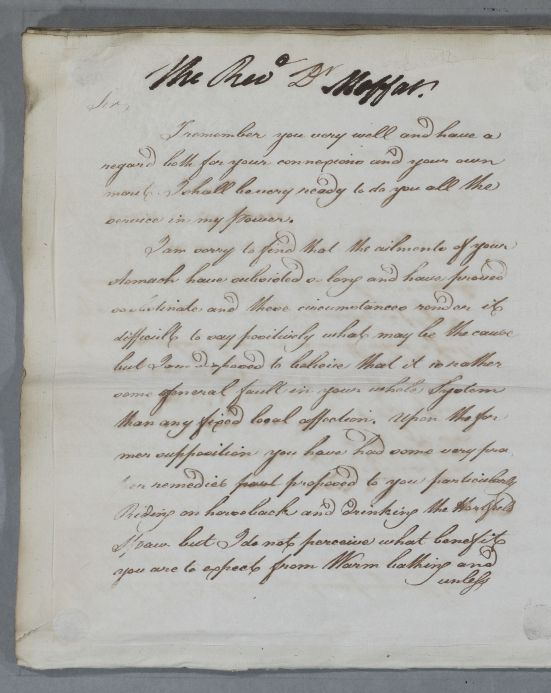 The Revd Dr Moffat.
Sir,
I remember you very well and have a
regard both for your connexions and your own
merit. I shall be very ready to do you all the
service in my power.
I am sorry to find that the ailments of your
stomach have subsisted so long and have proved
so obstinate and these circumstances render it
difficult to say positively what may be the cause
but I am disposed to believe that it is rather
some general fault in your whole System
than any fixed local affection. Upon the for
mer supposition you have had some very pro
per remedies proposed to you particularly
Riding on horseback and drinking the Hartfell
Spaw but I do not perceive what benefit
you are to expect from Warm bathing and
unless